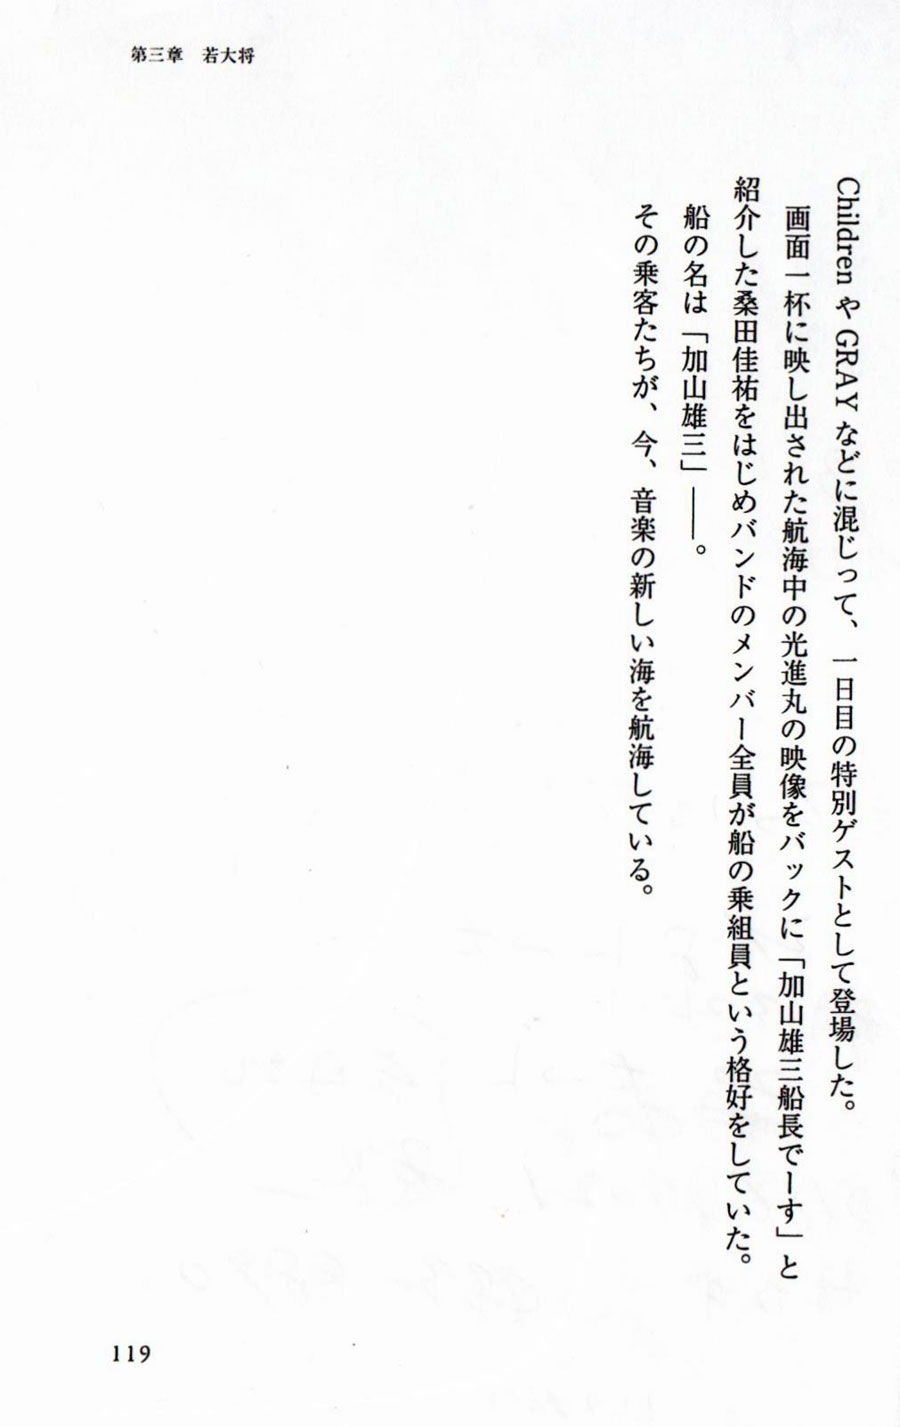 第三章　若大将
Children や GRAY などに混じって、一日目の特別ゲストとして登場した。
画面一杯に映し出された航海中の光進丸の映像をバックに「加山雄三船長でーす」と
紹介した桑田佳祐をはじめバンドのメンバー全員が船の乗組員という格好をしていた。
船の名は「加山雄三」――。
その乗客たちが、今、音楽の新しい海を航海している。
119